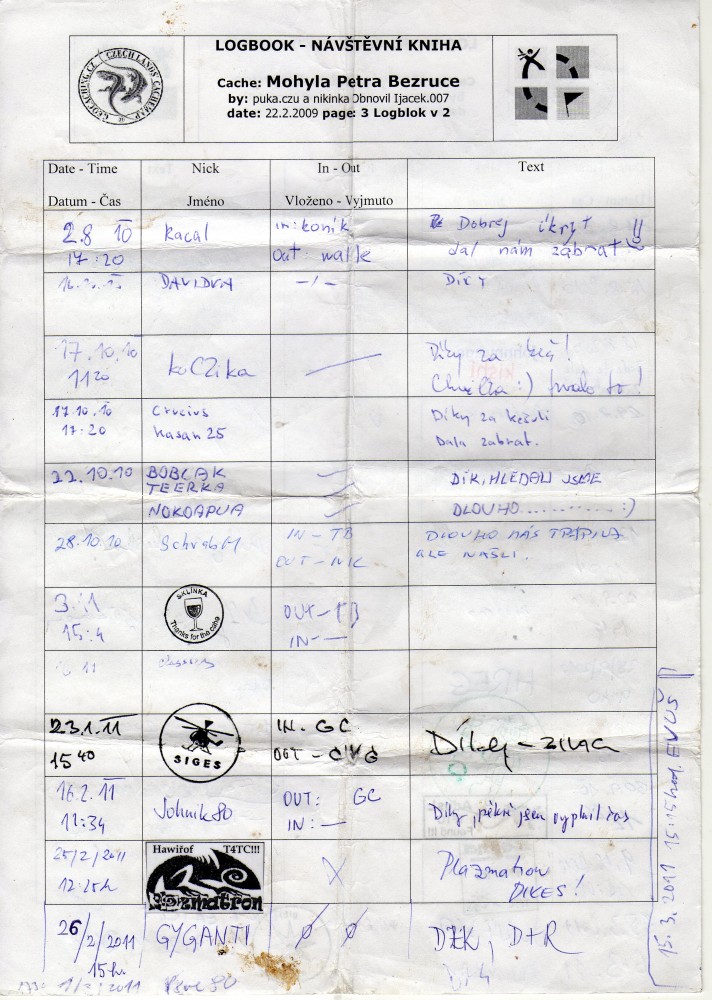 GEOCACHING.CZ CZECH LANDS CACHEMAP
LOGBOOK - NÁVŠTĚVNÍ KNIHA
Cache: Mohyla Petra Bezruce
by: puka.czu a nikinka Obnovil Ijacek.007
date: 22.2.2009 page: 3 Logblok v 2
Date - Time Nick In - Out Text
Datum - Čas Jméno Vloženo - Vyjmuto
2.8 10 Racal in: koník Dobrej íkryt !!
17:20 Out walle dal nám zabrat
DAVIDVA -/- DÍKY
17.10.10 Díky za keš!
1120 koCZika Chvilka :) trvalo to!
17.10.10 Crucius Díky za kešuli
17:20 Kasan25 Dala zabrat.
22.10.10 BOBLAK DÍK, HLEDALI JSME
TEERKA
NOKOAPUA DLOUHO..........:)
28.10.10 IN - TB DLOUHO NÁS TRÁPILA
OUT - NIC ALE NAŠLI.
3. 1 SKLÍNKA OUT - TB
15:4 Thanks for the cache IN: -
11
23.1.11 IN - GC
15 40 SIGES OUT - CWG Díky -
16.2. 11 Johnik80 OUT: GC
11:34 IN: - Díky, pěkně jsem vyplnil čas
25/2/2011 Hawiřof T4TC!!! X Plazmatron
12:25h Plazmatron DIKES!
26/2/2011 GYGANTI Ø Ø DZK, D+R
15h.
1/3/2011
15.3.2011 15:15hod. EVUŠ